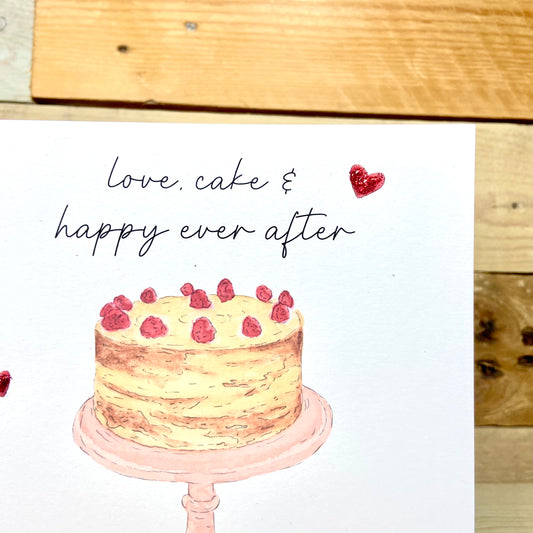 love, cake &
happy ever after